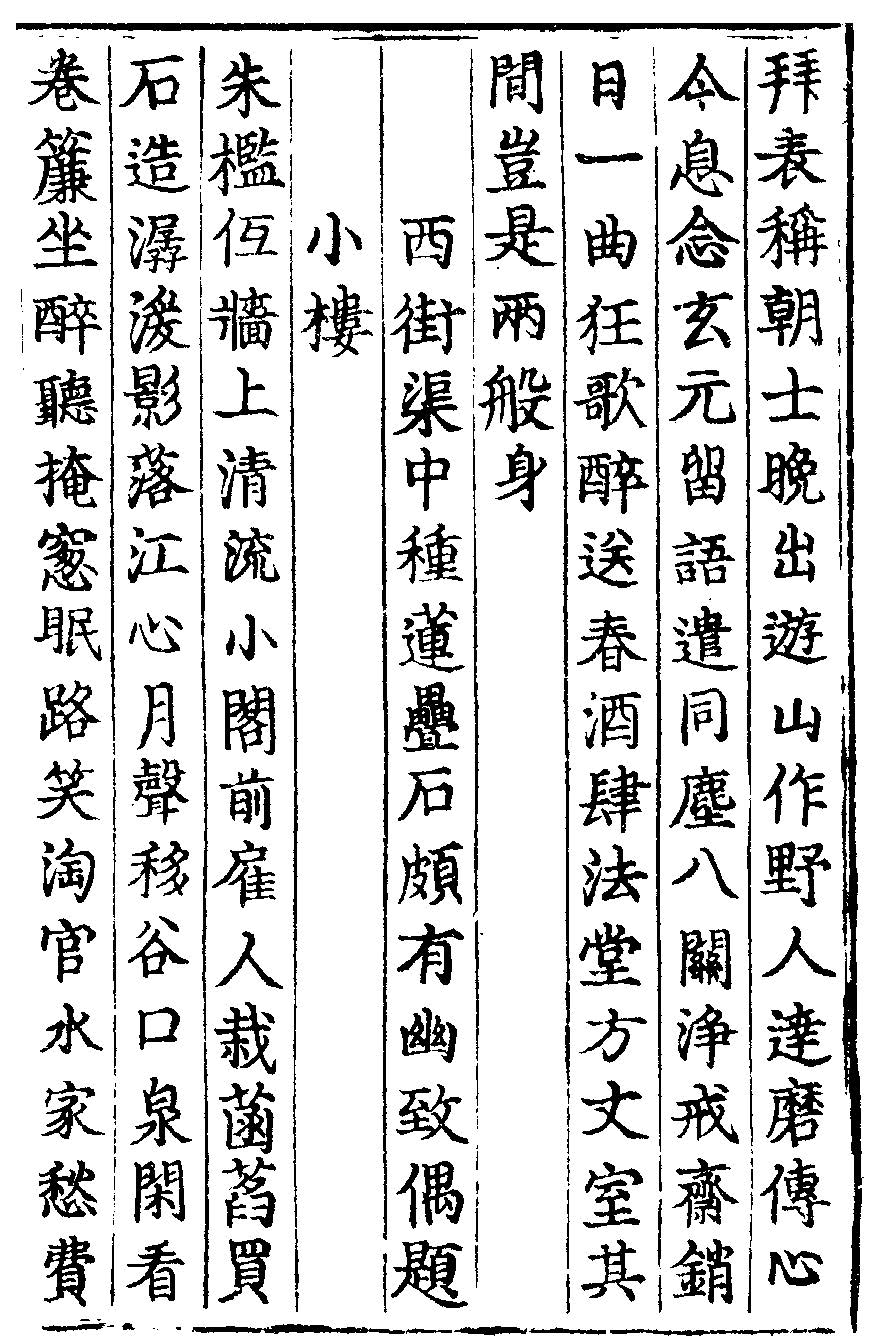 拜表稱朝士晚出遊山作野人達磨傳心
今息念玄元留語遣同塵八關淨戒齋銷
日一曲狂歌醉送春酒肆法堂方丈室其
間豈是兩般身
西街渠中種蓮疊石頗有幽致偶題
小樓
朱檻低牆上清流小閣前雇人栽菡萏買
石造潺湲影落江心月聲移谷口泉閑看
卷簾坐醉聽掩窓眠路笑淘官水家愁費